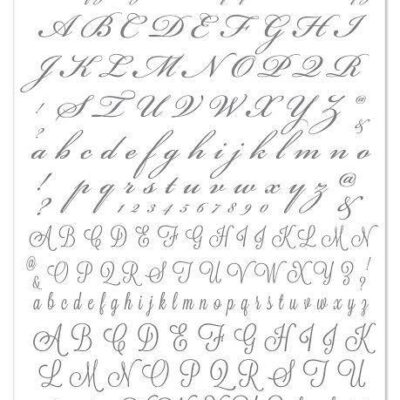 A B C D E F G H I
J K L M N O P Q R
! S T U V W X Y Z @
? &
a b c d e f g h i j k l m n o
! p q r s t u v w x y z @
? 1 2 3 4 5 6 7 8 9 0 &
A B C D E F G H I J K L M N
@ & O P Q R S T U V W X Y Z ? !
a b c d e f g h i j k l m n o p q r s t u v w x y z
A B C D E F G H I J K
L M N O P Q R S T U